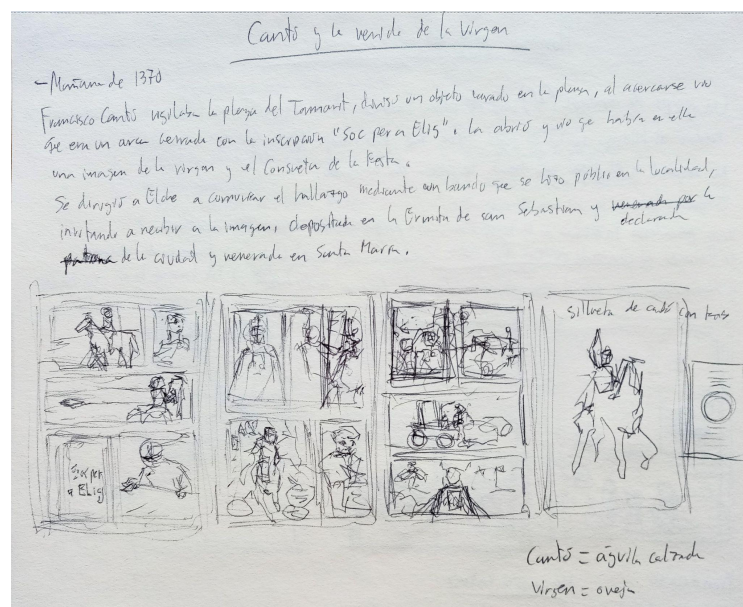 Cantó y la venida de la Virgen
- Mañana de 1370
Francisco Cantó vigilaba la playa del Tamarit, divisó un objeto varado en la playa, al acercarse vio
que era un arca cerrada con la inscripción "Soc per a Elig". La abrió y vio que había en ella
una imagen de la virgen y el Consueta de la Festa.
Se dirigió a Elche a comunicar el hallazgo mediante un bando que se hizo público en la localidad,
invitando a recibir a la imagen, depositada en la Ermita de san Sebastian y venerada por la
declarada
patrona de la ciudad y venerada en Santa María.
silueta de Cantó con
Soc per
a Elig
Cantó = águila calzada
Virgen = oveja